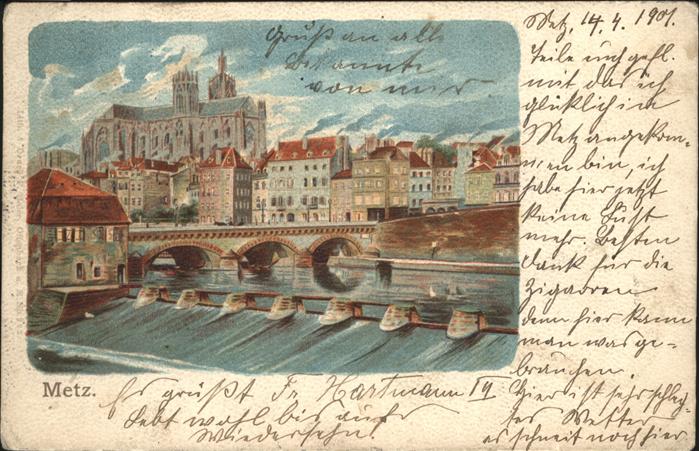 Gruß an alle
Bekannte
von mir
Metz, 14.4.1901.
Teile euch gefl.
mit das ich
glüklich in
Metz angekom-
men bin, ich
habe hier jetzt
keine Lust
mehr. Besten
Dank für die
Zigarren
denn hier kann
man was ge-
brauchen.
Hier ist sehr schlech-
tes Wetter
es schneit noch hier
Metz.
Es grüßt Fr. Hartmann
Lebt wohl bis aufs
Wiedersehn!